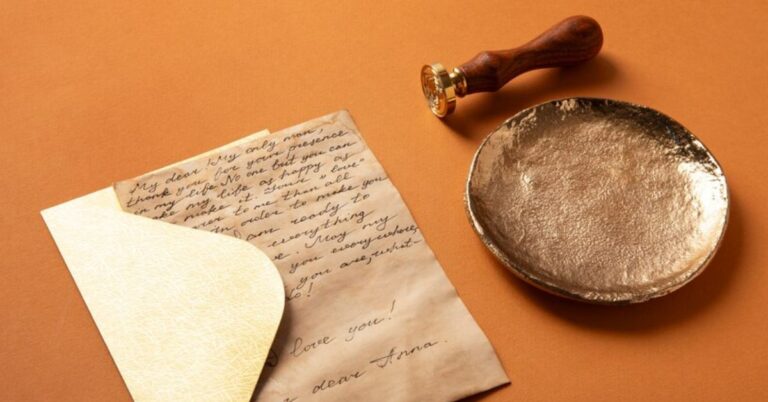 My dear! My only man,
thank you for your presence
in my life. No one but you can
make my life as happy as
make it. Your "love"
to me than all
In order to make you
am ready to
everything
. May my
you everywhere,
you are, what-
!
I love you!
dear Anna.